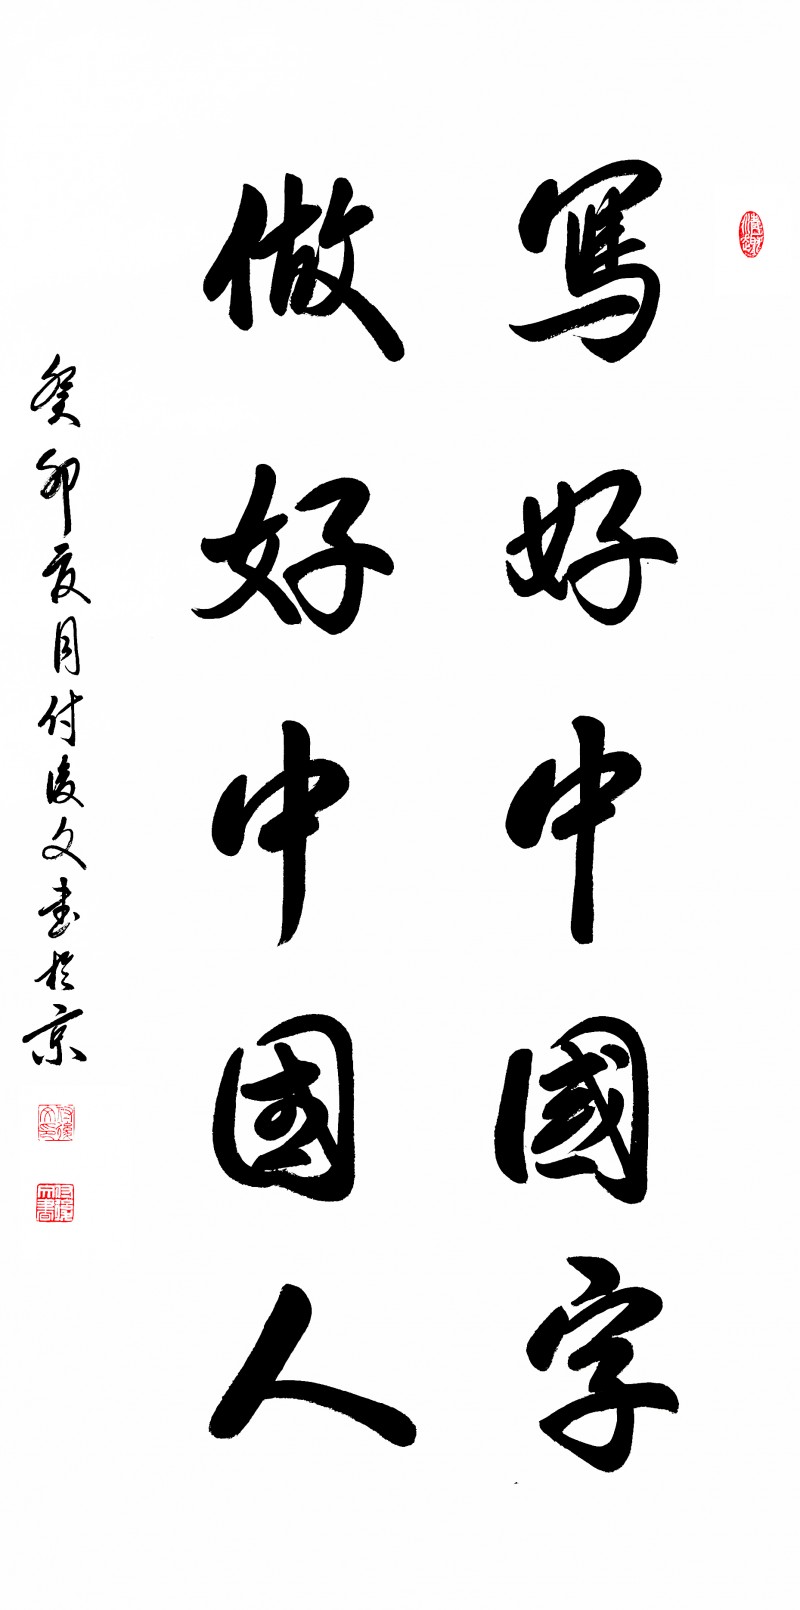 寫好中國字
做好中国人
癸卯亥月付俊文书於京